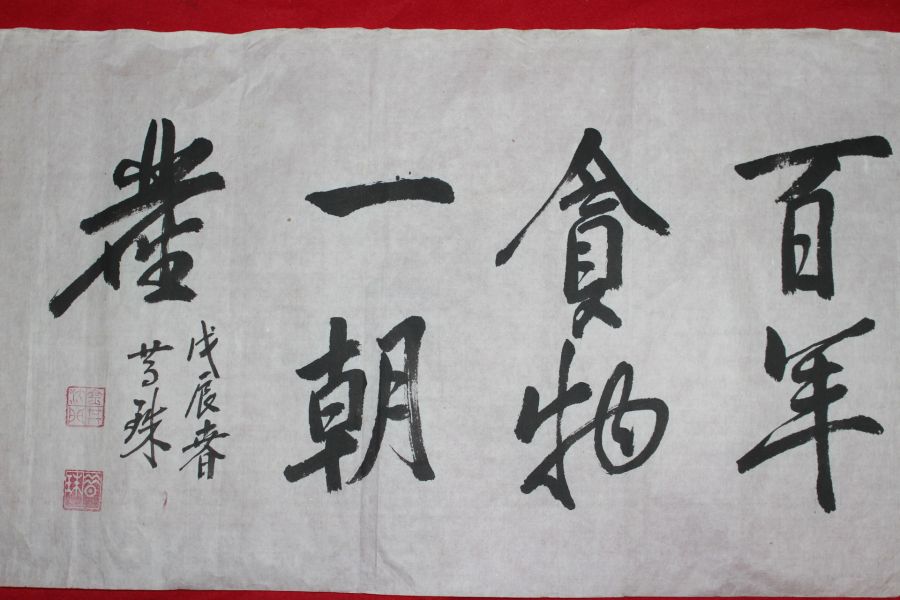 百年
貪物
一朝
塵
戊辰春
珠